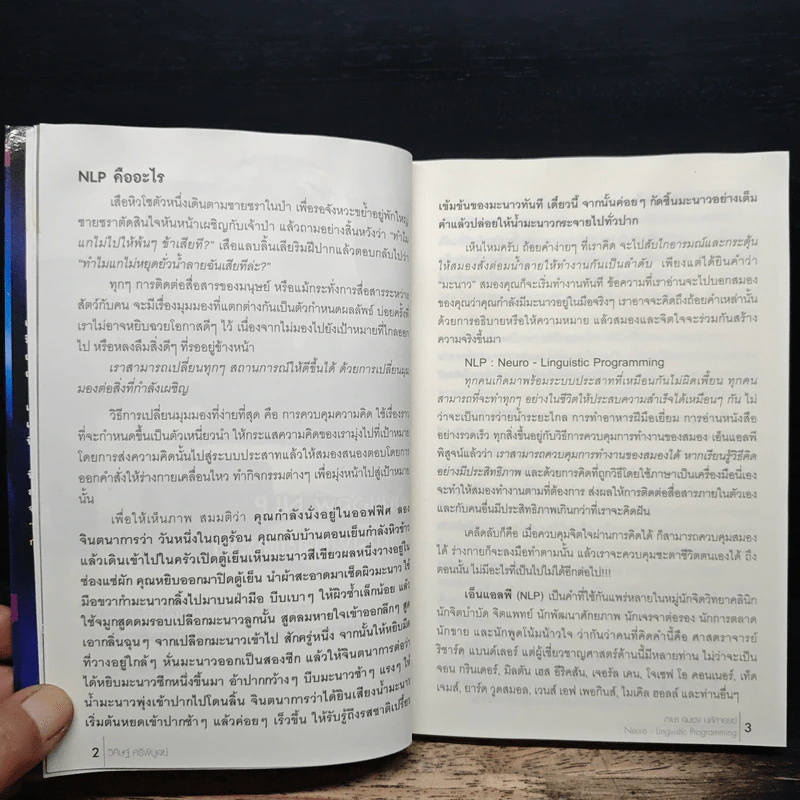 NLP คืออะไร
เสือหิวโซตัวหนึ่งเดินตามชายชราในป่า เพื่อรอจังหวะขย้ำอยู่พักใหญ่
ชายชราตัดสินใจหันหน้าเผชิญกับเจ้าป่า แล้วถามอย่างสิ้นหวังว่า "ทำไม
แกไม่ไปให้พ้นๆ ข้าเสียที?" เสือแลบลิ้นเลียริมฝีปากแล้วตอบกลับไปว่า
"ทำไมแกไม่หยุดยั่วน้ำลายฉันเสียทีล่ะ?"
ทุกๆ การติดต่อสื่อสารของมนุษย์ หรือแม้กระทั่งการสื่อสารระหว่าง
สัตว์กับคน จะมีเรื่องมุมมองที่แตกต่างกันเป็นตัวกำหนดผลลัพธ์ บ่อยครั้งที่
เราไม่อาจหยิบฉวยโอกาสดีๆ ไว้ เนื่องจากไม่มองไปยังเป้าหมายที่ไกลออก
ไป หรือหลงลืมสิ่งดีๆ ที่รออยู่ข้างหน้า
เราสามารถเปลี่ยนทุกๆ สถานการณ์ให้ดีขึ้นได้ ด้วยการเปลี่ยนมุม
มองต่อสิ่งที่กำลังเผชิญ
วิธีการเปลี่ยนมุมมองที่ง่ายที่สุด คือ การควบคุมความคิด ใช้เรื่องราว
ที่จะกำหนดขึ้นเป็นตัวเหนี่ยวนำ ให้กระแสความคิดของเรามุ่งไปที่เป้าหมาย
โดยการส่งความคิดนั้นไปสู่ระบบประสาทแล้วให้สมองสนองตอบโดยการ
ออกคำสั่งให้ร่างกายเคลื่อนไหว ทำกิจกรรมต่างๆ เพื่อมุ่งหน้าไปสู่เป้าหมาย
นั้น
เพื่อให้เห็นภาพ สมมติว่า คุณกำลังนั่งอยู่ในออฟฟิศ ลอง
จินตนาการว่า วันหนึ่งในฤดูร้อน คุณกลับบ้านตอนเย็นกำลังหิวข้าว
แล้วเดินเข้าไปในครัวเปิดตู้เย็นเห็นมะนาวสีเขียวผลหนึ่งวางอยู่ใน
ช่องแช่ผัก คุณหยิบออกมาปิดตู้เย็น นำผ้าสะอาดมาเช็ดผิวมะนาว ใช้
มือขวากำมะนาวกลิ้งไปมาบนฝ่ามือ บีบเบาๆ ให้ผิวช้ำเล็กน้อย แล้ว
ใช้จมูกสูดดมรอบเปลือกมะนาวลูกนั้น สูดลมหายใจเข้าออกลึกๆ สูด
เอากลิ่นฉุนๆ จากเปลือกมะนาวเข้าไป สักครู่หนึ่ง จากนั้นให้หยิบมีด
ที่วางอยู่ใกล้ๆ หั่นมะนาวออกเป็นสองซีก แล้วให้จินตนาการต่อว่า
ได้หยิบมะนาวซีกหนึ่งขึ้นมา อ้าปากกว้างๆ บีบมะนาวช้าๆ แรงๆ ให้
น้ำมะนาวพุ่งเข้าปากไปโดนลิ้น จินตนาการว่าได้ยินเสียงน้ำมะนาว
เริ่มต้นหยดเข้าปากช้าๆ แล้วค่อยๆ เร็วขึ้น ให้รับรู้ถึงรสชาติเปรี้ยว
2 วิศิษฐ์ ศรีพิบูลย์
เข้มข้นของมะนาวทันที เดี๋ยวนี้ จากนั้นค่อยๆ กัดชิ้นมะนาวอย่างเต็ม
คำแล้วปล่อยให้น้ำมะนาวกระจายไปทั่วปาก
เห็นไหมครับ ถ้อยคำง่ายๆ ที่เราคิด จะไปสับไกอารมณ์และกระตุ้น
ให้สมองสั่งต่อมน้ำลายให้ทำงานกันเป็นลำดับ เพียงแค่ได้ยินคำว่า
"มะนาว" สมองคุณก็จะเริ่มทำงานทันที ข้อความที่เราอ่านจะไปบอกสมอง
ของคุณว่าคุณกำลังมีมะนาวอยู่ในมือจริงๆ เราอาจจะคิดถึงถ้อยคำเหล่านั้น
ด้วยการอธิบายหรือให้ความหมาย แล้วสมองและจิตใจจะร่วมกันสร้าง
ความจริงขึ้นมา
NLP : Neuro - Linguistic Programming
ทุกคนเกิดมาพร้อมระบบประสาทที่เหมือนกันไม่ผิดเพี้ยน ทุกคน
สามารถที่จะทำทุกๆ อย่างในชีวิตให้ประสบความสำเร็จได้เหมือนๆ กัน ไม่
ว่าจะเป็นการว่ายน้ำระยะไกล การทำอาหารฝีมือเยี่ยม การอ่านหนังสือ
อย่างรวดเร็ว ทุกสิ่งขึ้นอยู่กับวิธีการควบคุมการทำงานของสมอง เอ็นแอลพี
พิสูจน์แล้วว่า เราสามารถควบคุมการทำงานของสมองได้ หากเรียนรู้วิธีคิด
อย่างมีประสิทธิภาพ และด้วยการคิดที่ถูกวิธีโดยใช้ภาษาเป็นเครื่องมือนี่เอง
จะทำให้สมองทำงานตามที่ต้องการ ส่งผลให้การติดต่อสื่อสารภายในตัวเอง
และกับคนอื่นมีประสิทธิภาพเกินกว่าที่เราจะคิดฝัน
เคล็ดลับก็คือ เมื่อควบคุมจิตใจผ่านการคิดได้ ก็สามารถควบคุมสมอง
ได้ ร่างกายก็จะลงมือทำตามนั้น แล้วเราจะควบคุมชะตาชีวิตตนเองได้ ถึง
ตอนนั้น ไม่มีอะไรที่เป็นไปไม่ได้อีกต่อไป!!!
เอ็นแอลพี (NLP) เป็นคำที่ใช้กันแพร่หลายในหมู่นักจิตวิทยาคลินิก
นักจิตบำบัด จิตแพทย์ นักพัฒนาศักยภาพ นักเจรจาต่อรอง นักการตลาด
นักขาย และนักพูดโน้มน้าวใจ ว่ากันว่าคนที่คิดคำนี้คือ ศาสตราจารย์
ริชาร์ด แบนด์เลอร์ แต่ผู้เชี่ยวชาญศาสตร์ด้านนี้มีหลายท่าน ไม่ว่าจะเป็น
จอน กรินเดอร์, มิลตัน เฮส อีริคสัน, เจอรัล เคน, โจเซฟ โอ คอนเนอร์, เท็ด
เจมส์, ยาร์ด วูดสมอล, เวนส์ เอฟ เพอกินส์, ไมเคิล ฮอลล์ และท่านอื่นๆ
Neuro - Linguistic Programming 3